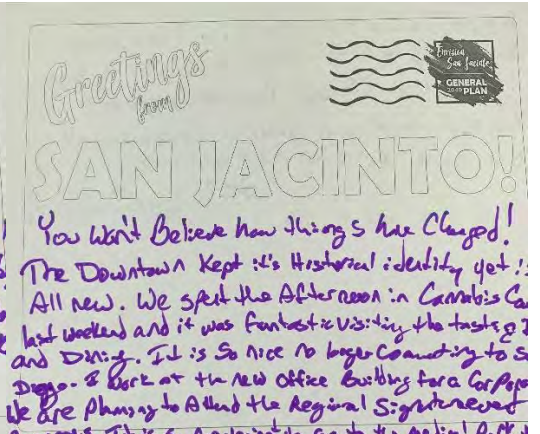 Greetings
from
Envision
San Jacinto
GENERAL
2040 PLAN
SAN JACINTO!
You Won't Believe how things have Changed!
The Downtown Kept it's Historical identity yet is
All new. We spent the Afternoon in Cannabis
last weekend and it was fantastic visiting the tasting
and Dining. It is So nice no longer Commuting to
Diego. I work at the new office Building for a
We are Planning to Attend the Regional
to the medical